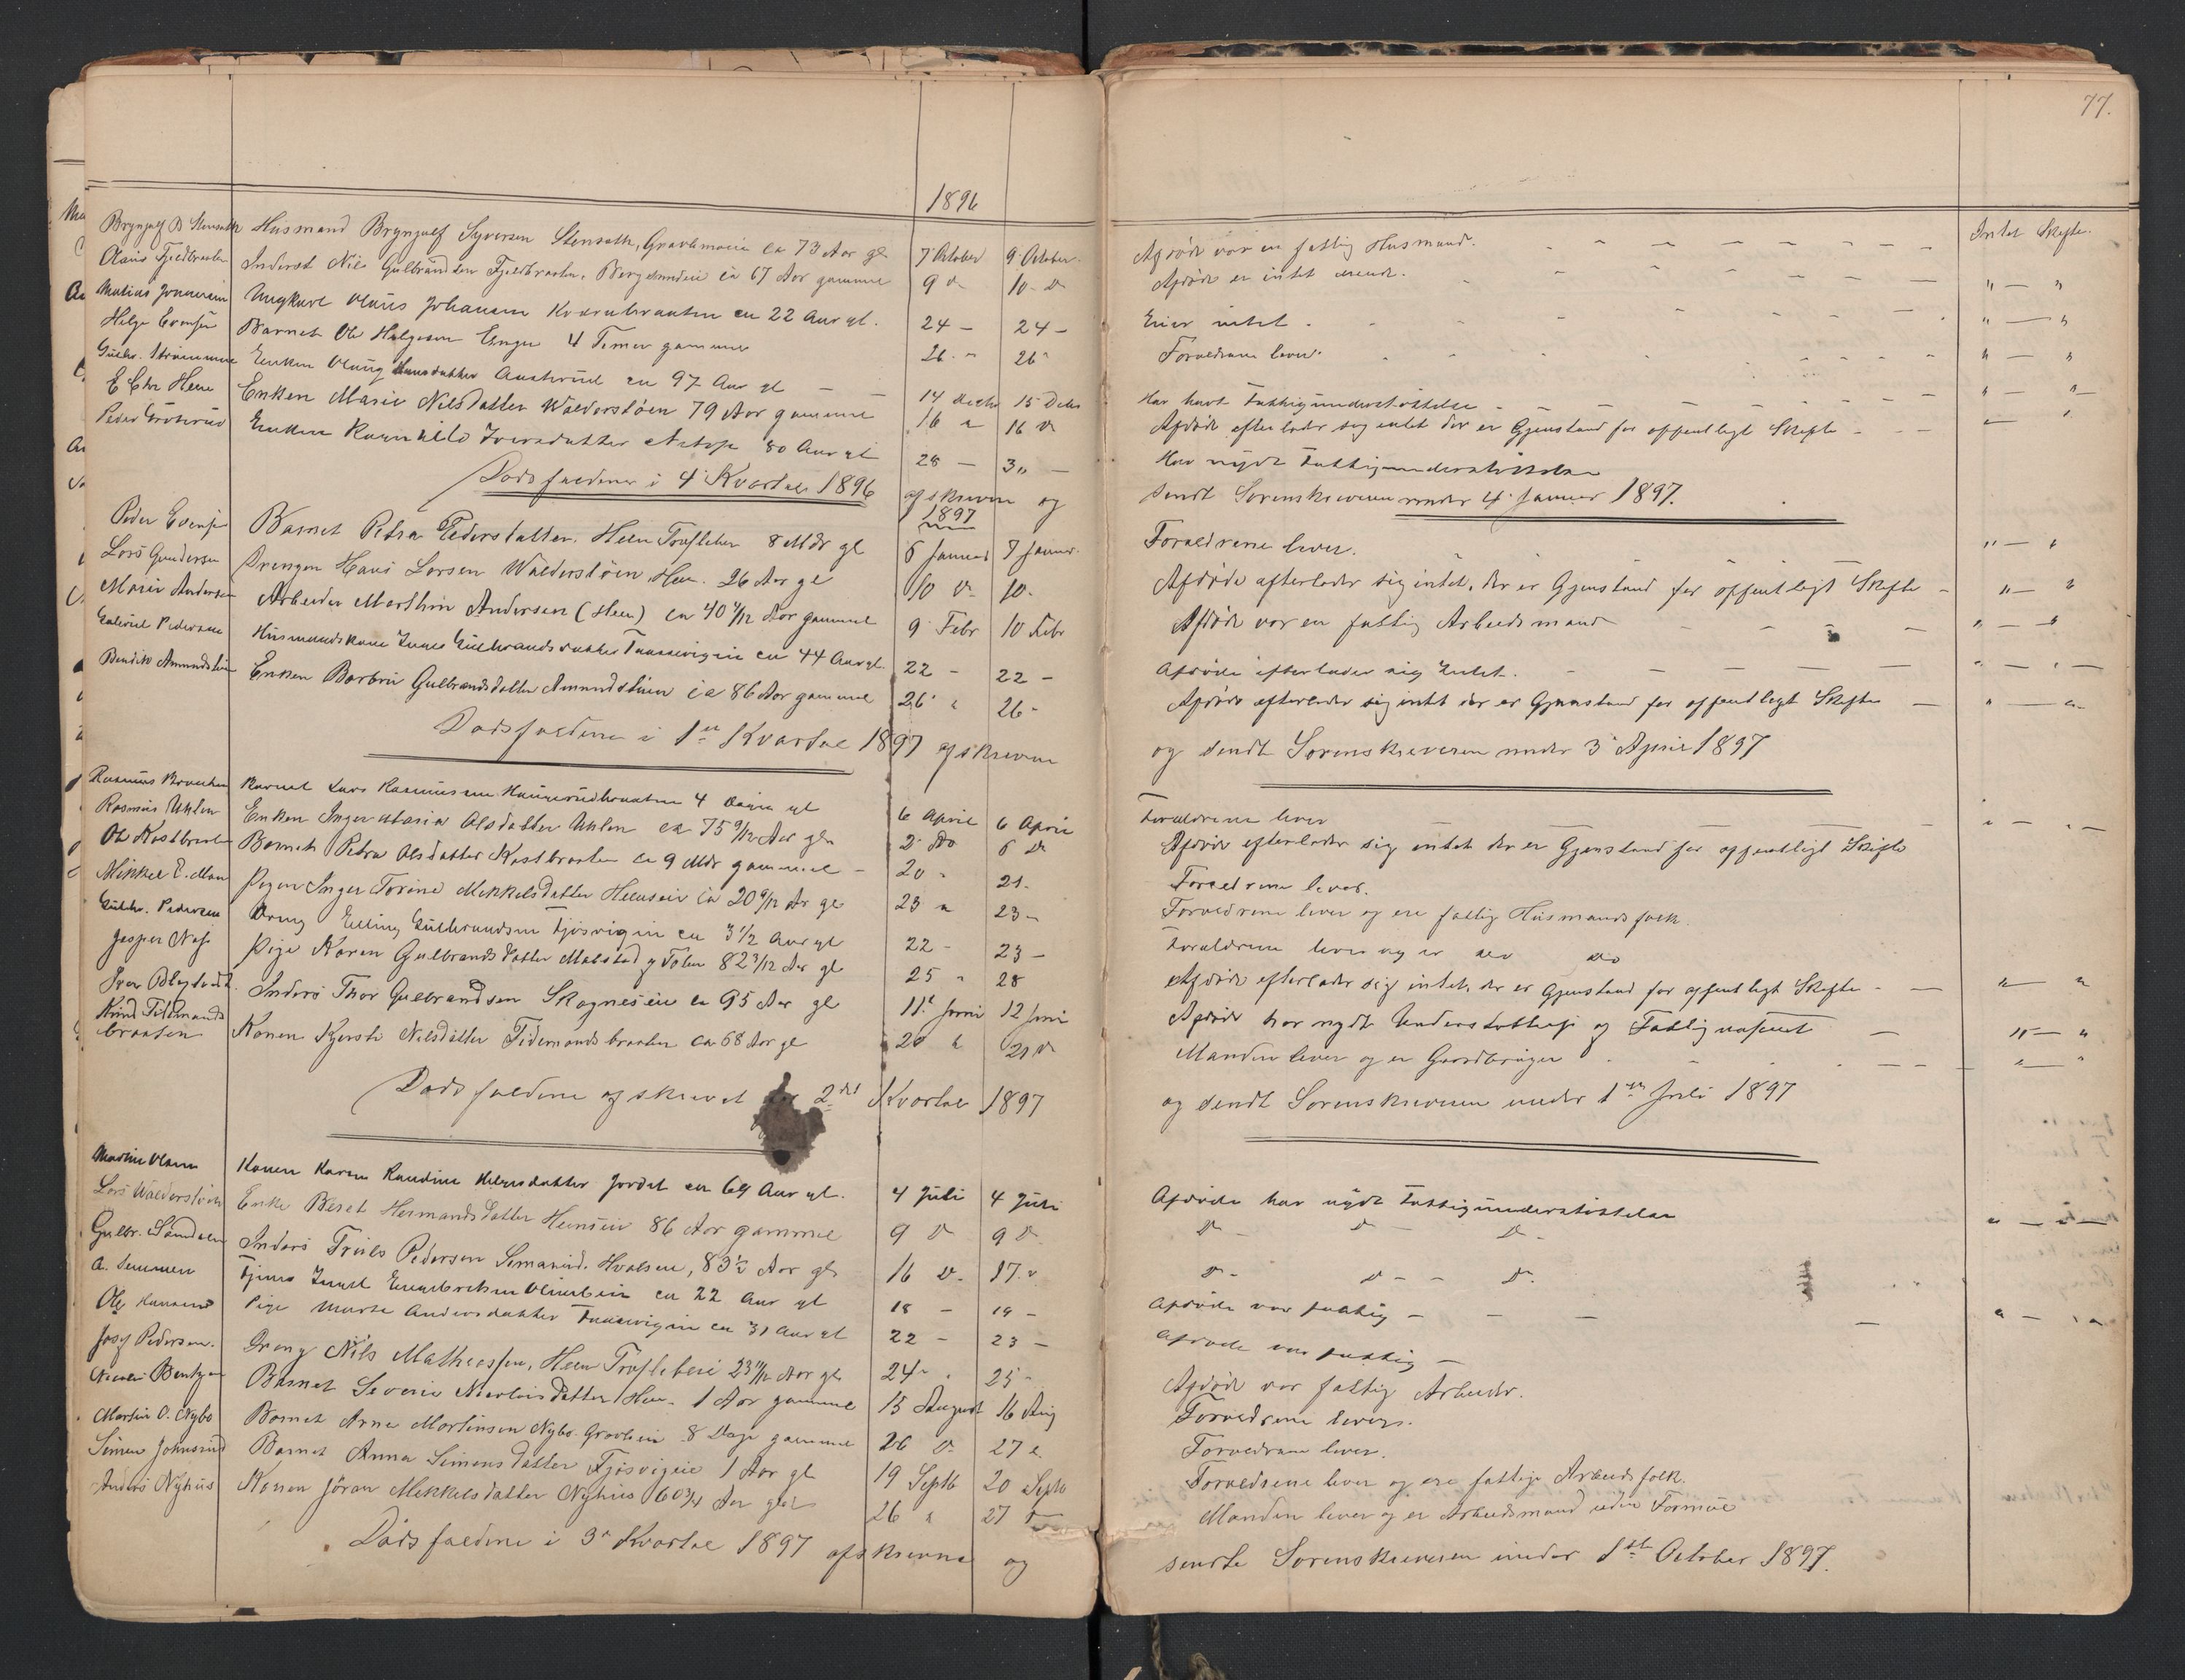 77.
1896
Brynjulf B Stensæth Husmand Brynjulf Syversen Stensæth, ca 73 Aar gl 7 October 9 October Afdøde var en fattig Husmand. Intet Skifte.
Olaus Fjeldbraaten Inderst Nils Gulbrandsen Fjeldbraaten, ca 67 Aar gammel 9 D 10 D Afdøde er intet eiende. " — "
Matias Ungkarl Olaus Johansen ca 22 Aar gl. 24 — 24 — Eier intet. " — "
Helge Evensen Barnet Ole Helgesen Enger 4 Timer gammel 26 " 26 " Forældrene lever. " — "
Gulbr. Strømmen Enken Olaug Hansdatter Austerud ca 97 Aar gl 14 Decbr 15 Decbr Har havt Fattigunderstøttelse " — "
E Chr Heen Enken Marie Nilsdatter Walderstøen 79 Aar gammel 16 " 16 D Afdøde efterlader sig intet der er Gjenstand for offentligt Skifte — "
Peder Grøterud Enken Ragnhild Iversdatter 80 Aar gl 28 — 30 — Har nydt Fattigunderstøttelse
Dødsfaldene i 4 Kvartal 1896 afskreven og sendt Sorenskriveren under 4 Januar 1897.
1897
Peder Evensen Barnet Petra Pedersdatter. Heen 8 Mdr gl 6 Januar 7 Januar. Forældrene lever. " — "
Lars Gundersen Drengen Hans Larsen Walderstøen, Heen. 26 Aar gl 10 D 10. Afdøde efterlader sig intet, der er Gjenstand for offentligt Skifte " — "
Marie Andersen Arbeider Marthin Andersen (Heen) ca 40 Aar gammel 9 Febr 10 Febr Afdøde var en fattig Arbeidsmand " — "
Gabriel Pedersen Husmandskone Gulbrandsdatter ca 44 Aar gl. 22 — 22 — Afdøde efterlader sig Intet. " — " —
Bendik Amundstøen Enken Barbro Gulbrandsdatter Amundstøen ca 86 Aar gammel 26 " 26 " Afdøde efterlader sig intet der er Gjenstand for offentligt Skifte — " — "
Dødsfaldene i 1ste Kvartal 1897 afskreven og sendt Sorenskriveren under 3 April 1897
Rasmus Barnet Lars Rasmussen Haugerudbraaten 4 Dage gl 6 April 6 April Forældrene lever " — " —
Rasmus Uhlen Enken Inger Maria Olsdatter Uhlen ca 75 9/12 Aar gl 2 Do 6 D Afdøde efterlader sig intet der er Gjenstand for offentligt Skifte
Ole Kastbraaten Barnet Petra Olsdatter Kastbraaten ca 9 Mdr gammel — 20 " 21. Forældrene lever.
Mikkel E. Moen Pigen Inger Torine Mikkelsdatter Heenseie ca 20 Aar gl 23 " 23 — Forældrene lever og ere fattig Husmandsfolk.
Gulbr. Pedersen Dreng Elling Gulbrandsen Fjøsvigeie ca 3 1/2 Aar gl 22 — 23 — Forældrene lever og er do do
Jesper Næs Pige Karen Gulbrandsdatter 82 3/12 Aar gl 25 " 28 Afdøde efterlader sig intet, der er Gjenstand for offentligt Skifte — " — "
Iver Inders Thor Gulbrandsen Skagneseie ca 95 Aar gl 11 Juni 12 Juni Afdøde har nydt Understøttelse af Fattigvæsenet — " — "
Knud Tidemandsbraaten Konen Kjersti Nilsdatter Tidemandsbraaten ca 68 Aar gl 20 " 21 D Manden lever og er Gaardbruger " — "
Dødsfaldene afskrevet for 2det Kvartal 1897 og sendt Sorenskriveren under 1ste Juli 1897
Martin Olsen Konen Karen Randine Helgesdatter Jordet ca 69 Aar gl. 4 Juli 4 Juli Afdøde har nydt Fattigunderstøttelse
Lars Walderstøen Enke Beret Hermandsdatter Heenseie 86 Aar gammel 9 D 9 D D — D — D — " — " —
Gulbr. Sanddalen Inders Truls Pedersen Hvalsen, 83 1/2 Aar gl 16 D. 17 " D — D — — D.
A. Semmen Engebretsen ca 22 Aar gl 18 — 19 — Afdøde var fattig — — — — " — " "
Ole Hansen Pige Marte Andersdatter ca 31 Aar gl 22 — 23 — Afdøde var fattig —
Josef Pedersen. Dreng Nils Mathiassen, Heen 23 11/12 Aar gl 24 " 25 " Afdøde var fattig Arbeider.
Nicolai Bentzen Barnet Severin Nicolaisdatter Heen. 1 Aar gammel 15 August 16 Aug Forældrene lever.
Martin O. Nybo Barnet Arne Martinsen Nybo. 8 Dage gammel 26 D 27 " Forældrene lever.
Simen Johnsrud Barnet Anna Simensdatter Fjøsvigeie 1 Aar gl 19 Septb 20 Septb Forældrene lever og ere fattige Arbeidsfolk.
Anders Nyhus Konen Jøran Mikkelsdatter Nyhus 60 3/4 Aar gl 26 " 27 D Manden lever og er Arbeidsmand uden Formue
Dødsfaldene i 3 Kvartal 1897 afskrevne og sendte Sorenskriveren under 1ste October 1897.